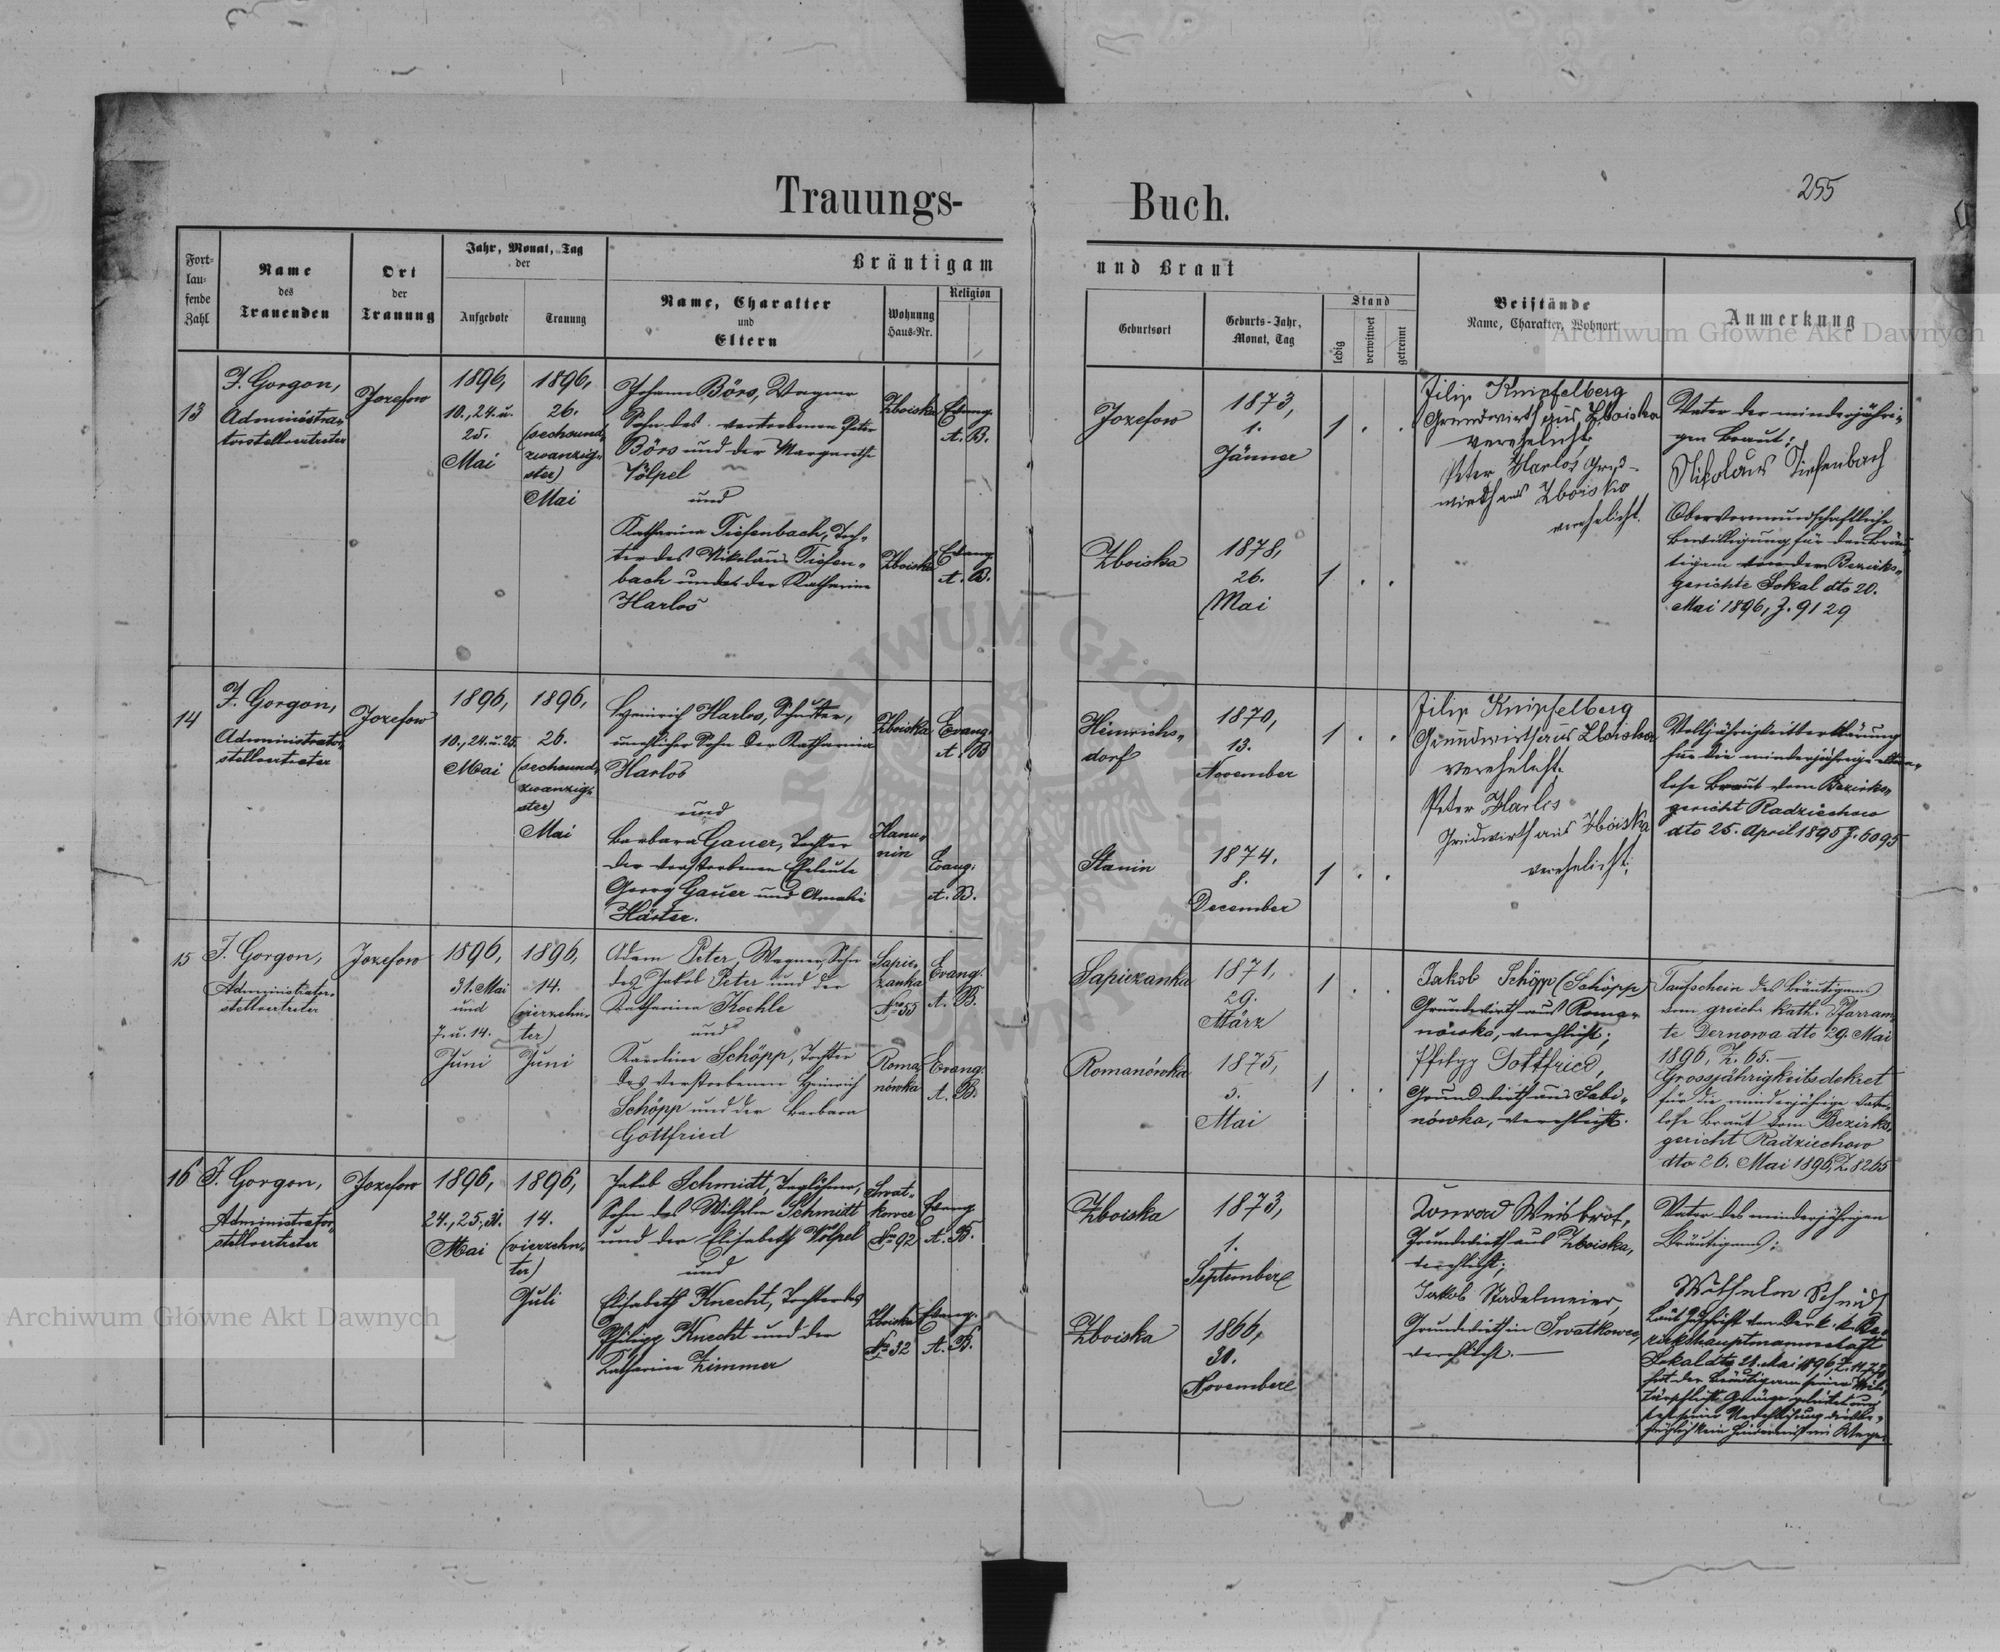 Trauungs-
Buch.
255
Fort-
lau-
fende
Zahl
Name
des
Trauenden
Ort
der
Trauung
Jahr, Monat, Tag
der
Aufgebote
Trauung
Bräutigam
Name, Charakter
und
Eltern
Wohnung
Haus-Nr.
Religion
und Braut
Geburtsort
Geburts-Jahr,
Monat, Tag
Stand
ledig
verwitwet
getrennt
Beistände
Name, Charakter, Wohnort
Anmerkung
Archiwum Główne Akt Dawnych
13
F. Gorgon,
Administra-
torstellvertreter
Jozefow
1896,
10., 24. u.
25.
Mai
1896,
26.
(sechsund-
zwanzig-
ster)
Mai
Johann Börs, Wagner
Sohn des verstorbenen Peter
Börs und der Margarethe
Völpel
und
Katharina Tiefenbach, Toch-
ter des Nikolaus Tiefen-
bach und der Katharina
Harlos
Zboiska
Evang.
A. B.
Zboiska
Evang.
A. B.
Jozefow
1873,
1.
Jänner
1 . .
Zboiska
1878,
26.
Mai
1 . .
Filip Knipfelberg
Grundwirth aus Zboiska
verehelicht
Peter Harlos Grd-
wirth aus Zboiska
verehelicht.
Vater der minderjähri-
gen Braut:
Nikolaus Tiefenbach
Obervormundschaftliche
Bewilligung für den Bräu-
tigam von dem Bezirks-
gerichte Sokal dto 20.
Mai 1896, Z. 9129
14
F. Gorgon,
Administrator-
stellvertreter
Jozefow
1896,
10., 24. u. 25.
Mai
1896,
26.
(sechsund-
zwanzig-
ster)
Mai
Heinrich Harlos, Schuster,
unehelicher Sohn der Katharina
Harlos
und
Barbara Gauer, Tochter
der verstorbenen Eheleute
Georg Gauer und Amalie
Härter.
Zboiska
Evang.
A. B
Hanu-
nin
Evang.
A. B.
Heinrichs-
dorf
1870,
13.
November
1 . .
Stanin
1874,
8.
December
1 . .
Filip Knipfelberg
Grundwirth aus Zboiska
verehelicht.
Peter Harlos
Grundwirth aus Zboiska
verehelicht.
Volljährigkeitserklärung
für die minderjährige eltern-
lose Braut vom Bezirks-
gericht Radziechow
dto 25. April 1895 Z. 6095
15
F. Gorgon,
Administrator-
stellvertreter
Jozefow
1896,
31. Mai
und
7. u. 14.
Juni
1896,
14.
(vierzehn-
ter)
Juni
Adam Peter, Wagner, Sohn
des Jakob Peter und der
Katharina Koehle
und
Karolina Schöpp, Tochter
des verstorbenen Heinrich
Schöpp und der Barbara
Gottfried
Sapie-
zanka
No 55
Evang.
A. B.
Roma-
nówka
Evang.
A. B.
Sapiezanka
1871,
29.
März
1 . .
Romanówka
1875,
5.
Mai
1 . .
Jakob Schöpp (Schöpp)
Grundwirth aus Roma-
nówka, verehlicht;
Philipp Gottfried,
Grundwirth aus Sabi-
nówka, verehlicht.
Taufschein des Bräutigams
vom griech. kath. Pfarram-
te Dernowa dto 29. Mai
1896, Z. 65.
Grossjährigkeitsdekret
für die minderjährige vater-
lose Braut vom Bezirks-
gericht Radziechow
dto 26. Mai 1896, Z. 8265
16
F. Gorgon,
Administrator-
stellvertreter
Jozefow
1896,
24., 25., 31.
Mai
1896,
14.
(vierzehn-
ter)
Juli
Jakob Schmidt, Taglöhner,
Sohn des Wilhelm Schmidt
und der Elisabeth Völpel
und
Elisabeth Knecht, Tochter des
Philipp Knecht und der
Katharina Zimmer
Swat-
kowce
No 92
Evang.
A. B.
Zboiska
No 32
Evang.
A. B.
Zboiska
1873,
1.
September
Zboiska
1866,
30.
November
Konrad Weisbrot,
Grundwirth aus Zboiska,
verehlicht;
Jakob Stadelmeier,
Grundwirth in Swatkowce,
verehlicht.
Vater des minderjährigen
Bräutigams:
Wilhelm Schmidt
Laut Zuschrift von der k. k. Be-
zirkshauptmannschaft
Sokal dto 21. Mai 1896, Z.
hat der Bräutigam seiner Mili-
tärpflicht Genüge geleistet und
steht seiner Verehlichung diesbe-
züglich kein Hinderniss im Wege.
Archiwum Główne Akt Dawnych
ARCHIWUM GŁÓWNE AKT DAWNYCH